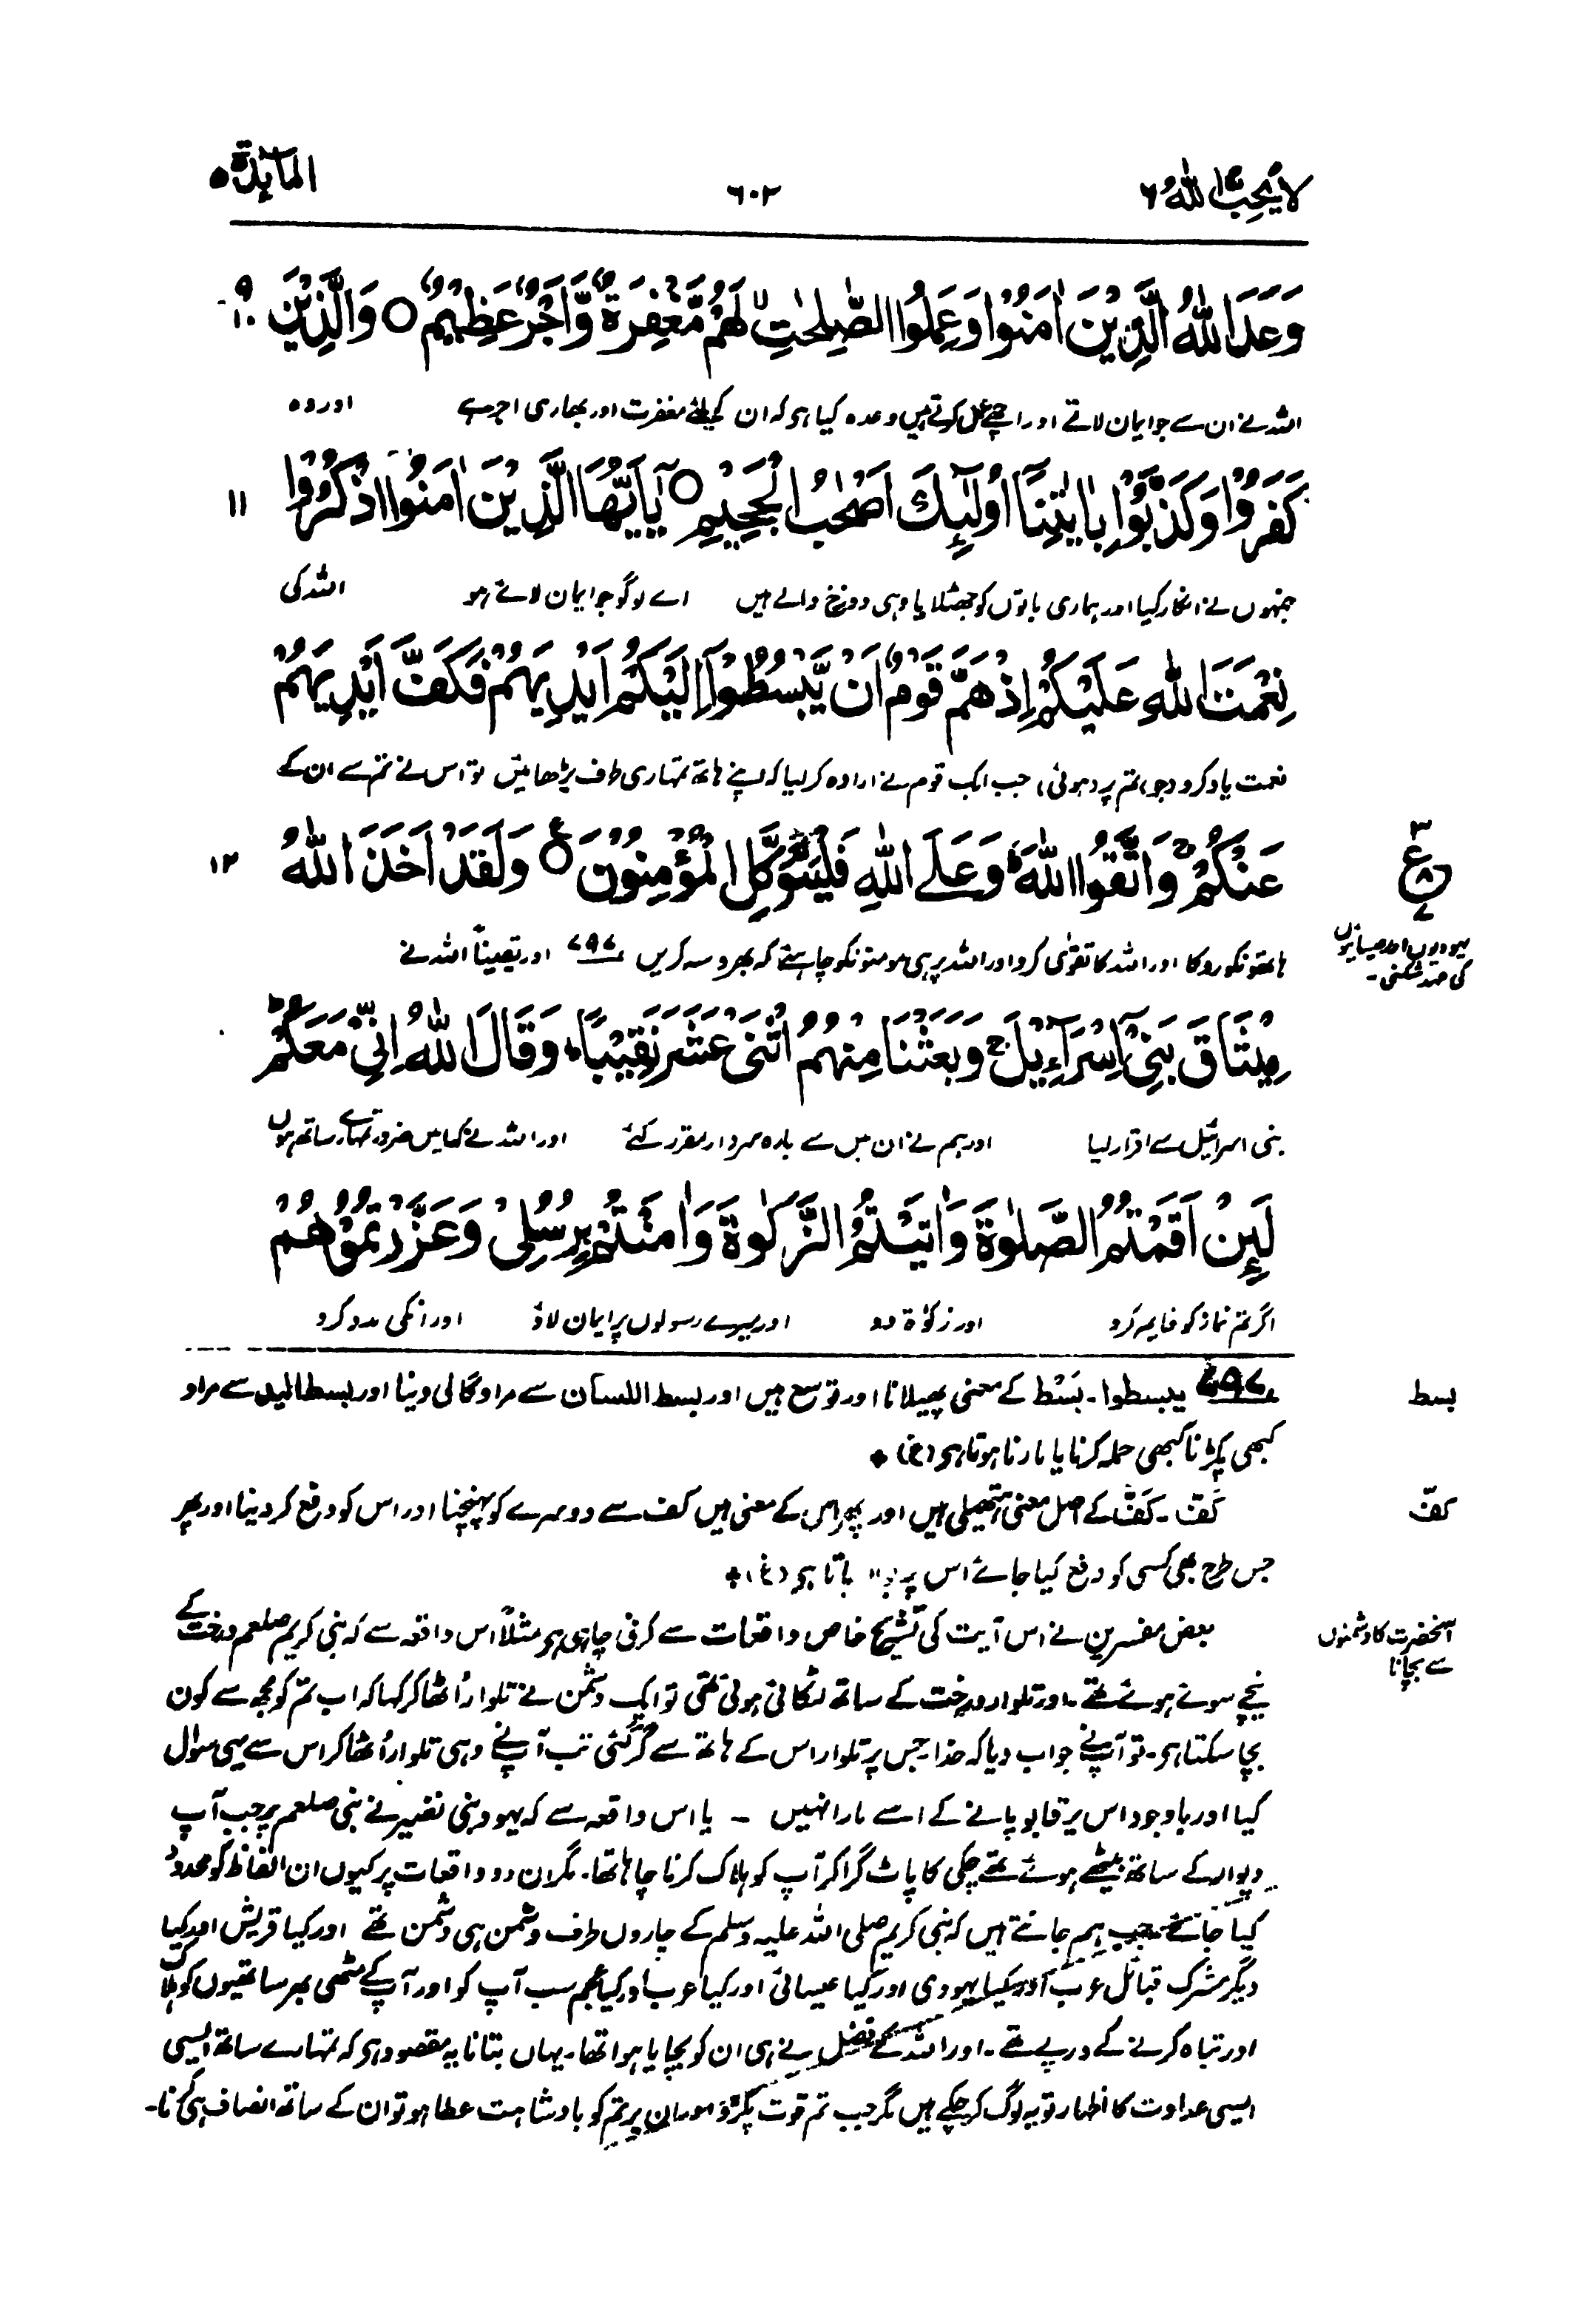 لا یحب اللہ ۶
۶۰۲
المآئدة ۵
وَعَدَ اللّٰهُ الَّذِيْنَ اٰمَنُوْا وَعَمِلُوا الصّٰلِحٰتِ ۙ لَهُمْ مَّغْفِرَةٌ وَّاَجْرٌ عَظِيْمٌ ○ وَالَّذِيْنَ
۹ ۱۰
اللہ نے ان سے جو ایمان لاتے اور اچھے عمل کرتے ہیں وعدہ کیا ہو کہ ان کیلئے مغفرت اور بھاری اجر ہے اور وہ
كَفَرُوْا وَكَذَّبُوْا بِاٰيٰتِنَآ اُولٰٓئِكَ اَصْحٰبُ الْجَحِيْمِ ○ يٰٓاَيُّهَا الَّذِيْنَ اٰمَنُوا اذْكُرُوْا
۱۱
جنہوں نے انکار کیا اور ہماری باتوں کو جھٹلایا وہی دوزخ والے ہیں اے لوگو جو ایمان لائے ہو اللہ کی
نِعْمَتَ اللّٰهِ عَلَيْكُمْ اِذْ هَمَّ قَوْمٌ اَنْ يَّبْسُطُوْٓا اِلَيْكُمْ اَيْدِيَهُمْ فَكَفَّ اَيْدِيَهُمْ
نعمت یاد کرو (جو) تم پر (ہوئی) جب ایک قوم نے ارادہ کر لیا کہ اپنے ہاتھ تمہاری طرف بڑھائیں تو اس نے تم سے ان کے
عَنْكُمْ ۚ وَاتَّقُوا اللّٰهَ ؕ وَعَلَى اللّٰهِ فَلْيَتَوَكَّلِ الْمُؤْمِنُوْنَ ○ وَلَقَدْ اَخَذَ اللّٰهُ
۱۲
ع
ہاتھونکو روکا اور اللہ کا تقویٰ کرو اور اللہ پر ہی مومنونکو چاہئے کہ بھروسہ کریں ۷۹۷ اور یقیناً اللہ نے
یہودیوں اور عیسائیوں
کی عہد شکنی۔
مِيْثَاقَ بَنِيْٓ اِسْرَآءِيْلَ ۚ وَبَعَثْنَا مِنْهُمُ اثْنَيْ عَشَرَ نَقِيْبًا ؕ وَقَالَ اللّٰهُ اِنِّيْ مَعَكُمْ ؕ
بنی اسرائیل سے اقرار لیا اور ہم نے ان میں سے بارہ سردار مقرر کئے اور اللہ نے کہا میں ضرور تمہارے ساتھ ہوں
لَئِنْ اَقَمْتُمُ الصَّلٰوةَ وَاٰتَيْتُمُ الزَّكٰوةَ وَاٰمَنْتُمْ بِرُسُلِيْ وَعَزَّرْتُمُوْهُمْ
اگر تم نماز کو قایم کرو اور زکوٰۃ دو اور میرے رسولوں پر ایمان لاؤ اور انکی مدد کرو
بسط
۷۹۷ یبسطوا۔ بَسْط کے معنی پھیلانا اور توسع ہیں اور بسط اللسان سے مراد گالی دینا اور بسط الید سے مراد
کبھی پکڑنا کبھی حملہ کرنا یا مارنا ہوتا ہو (غ) ٭
کفّ
کَفَّ۔ کَفّ کے اصل معنی ہتھیلی ہیں اور پھر اس کے معنی ہیں کف سے دوسرے کو پہنچنا اور اس کو دفع کر دینا اور پھر
جس طرح بھی کسی کو دفع کیا جائے اس پر جاتا ہو (غ) ٭
آنحضرت کا دشمنوں
سے بچانا
بعض مفسرین نے اس آیت کی تشریح خاص واقعات سے کرنی چاہی ہو مثلاً اس واقعہ سے کہ نبی کریم صلعم درخت کے
نیچے سوئے ہوئے تھے۔ اور تلوار درخت کے ساتھ لٹکائی ہوئی تھی تو ایک دشمن نے تلوار اُٹھا کر کہا کہ اب تم کو مجھ سے کون
بچا سکتا ہو۔ تو آپ نے جواب دیا کہ خدا۔ جس پر تلوار اس کے ہاتھ سے گر گئی تب آپ نے وہی تلوار اُٹھا کر اس سے یہی سوال
کیا اور باوجود اس پر قابو پانے کے اسے مارا نہیں ۔ یا اس واقعہ سے کہ یہود بنی نضیر نے نبی صلعم پر جب آپ
دیوار کے ساتھ بیٹھے ہوئے تھے چکی کا پاٹ گرا کر آپ کو ہلاک کرنا چاہا تھا۔ مگر ان دو واقعات پر کیوں ان الفاظ کو محدود
کیا جائے جب ہم جانتے ہیں کہ نبی کریم صلی اللہ علیہ وسلم کے چاروں طرف دشمن ہی دشمن تھے اور کیا قریش اور کیا
دیگر مشرک قبائل عرب اور کیا یہودی اور کیا عیسائی اور کیا عرب اور کیا عجم سب آپ کو اور آپ کے مٹھی بھر ساتھیوں کو ہلاک
اور تباہ کرنے کے درپے تھے۔ اور اللہ کے فضل نے ہی ان کو بچایا ہوا تھا۔ یہاں بتانا یہ مقصود ہو کہ تمہارے ساتھ ایسی
ایسی عداوت کا اظہار تو یہ لوگ کر چکے ہیں مگر جب تم قوت پکڑو اور ان پر تم کو بادشاہت عطا ہو تو ان کے ساتھ انصاف ہی کرنا۔